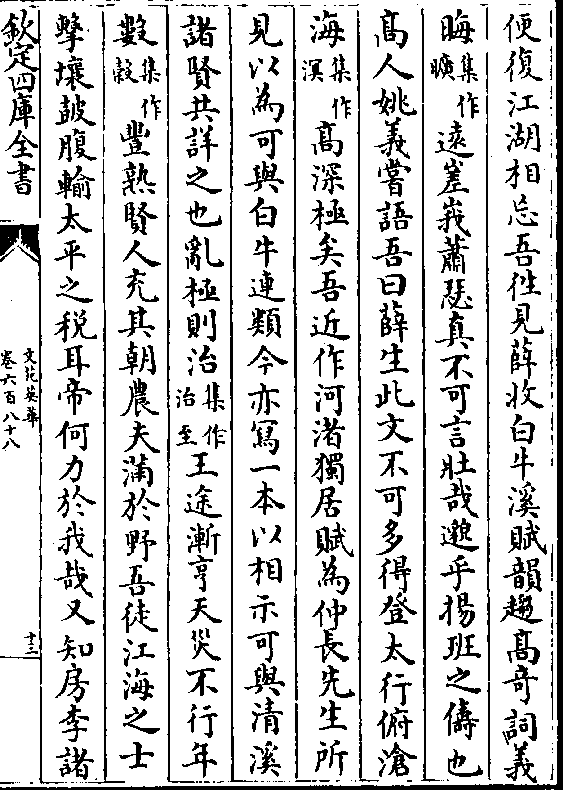 便復江湖相忘吾徃見薛收白牛溪賦韻趨高竒詞義
晦集作曠遠嵳峩蕭瑟真不可言壯哉邈乎揚班之儔也
高人姚義嘗語吾曰薛生此文不可多得登太行俯滄
海集作溟高深極矣吾近作河渚獨居賦為仲長先生所
見以為可與白牛連類今亦寫一本以相示可與清溪
諸賢共詳之也亂極則治集作治至王途漸亨天災不行年
數集作穀豐熟賢人充其朝農夫滿於野吾徒江海之士
擊壤鼓腹輸太平之税耳帝何力於我哉又知房李諸
欽定四庫全書
文苑英華
卷六百八十八
十三